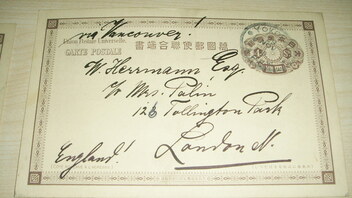 via Vancouver!
Union Postale Universelle
CARTE POSTALE
書端合聯便郵國帝
W. Herrmann Esq.
To Mrs. Palin
126 Tollington Park
London N.
England!